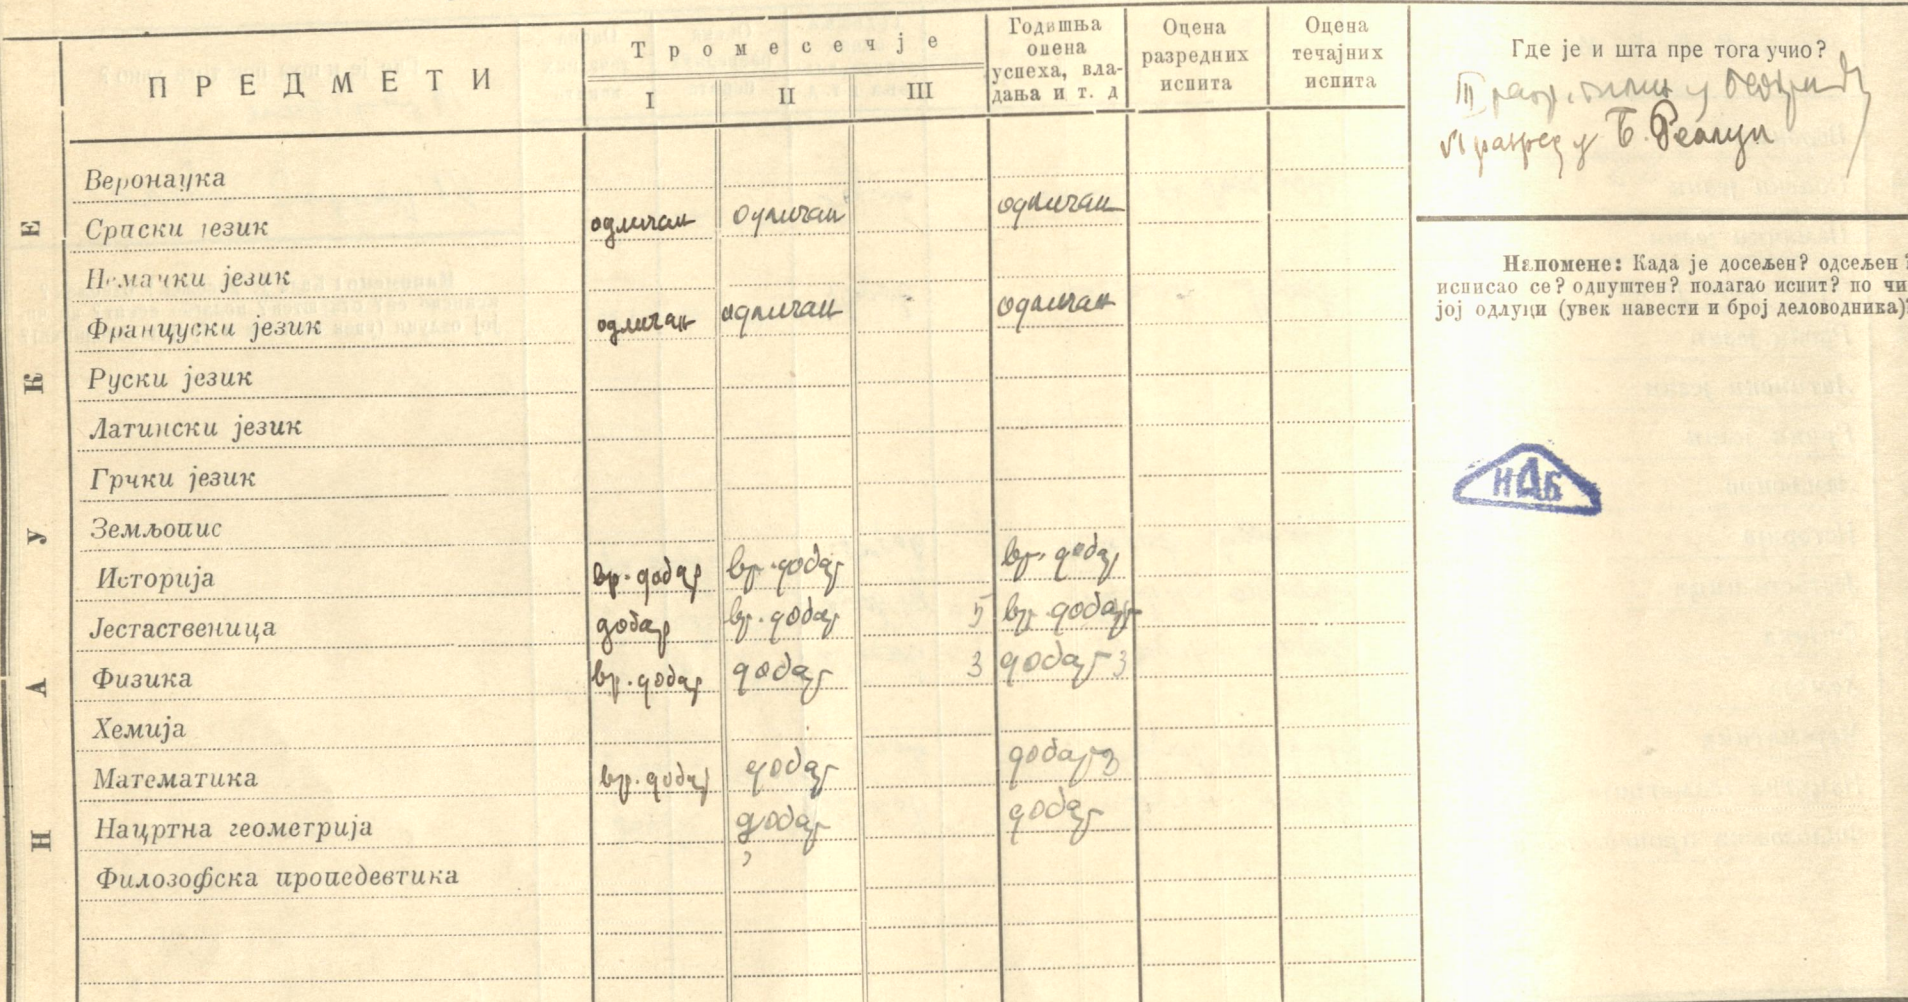 ПРЕДМЕТИ
Тромесечје
I II III
Годишња оцена успеха, вла-дања и т. д
Оцена разредних испита
Оцена течајних испита
НАУКЕ
Веронаука
Српски језик одличан одличан одличан
Немачки језик
Француски језик одличан одличан одличан
Руски језик
Латински језик
Грчки језик
Земљопис
Историја вр. добар вр. добар вр. добар
Јестаственица добар вр. добар 5 вр. добар
Физика вр. добар добар 3 добар 3
Хемија
Математика вр. добар добар добар 3
Нацртна геометрија добар добар
Филозофска пропедевтика
Где је и шта пре тога учио?
III у Београду
VI разред у Б. Реалци
Напомене: Када је досељен? одсељен?
исписао се? одпуштен? полагао испит? по чи
јој одлуци (увек навести и број деловодника)?
НДБ